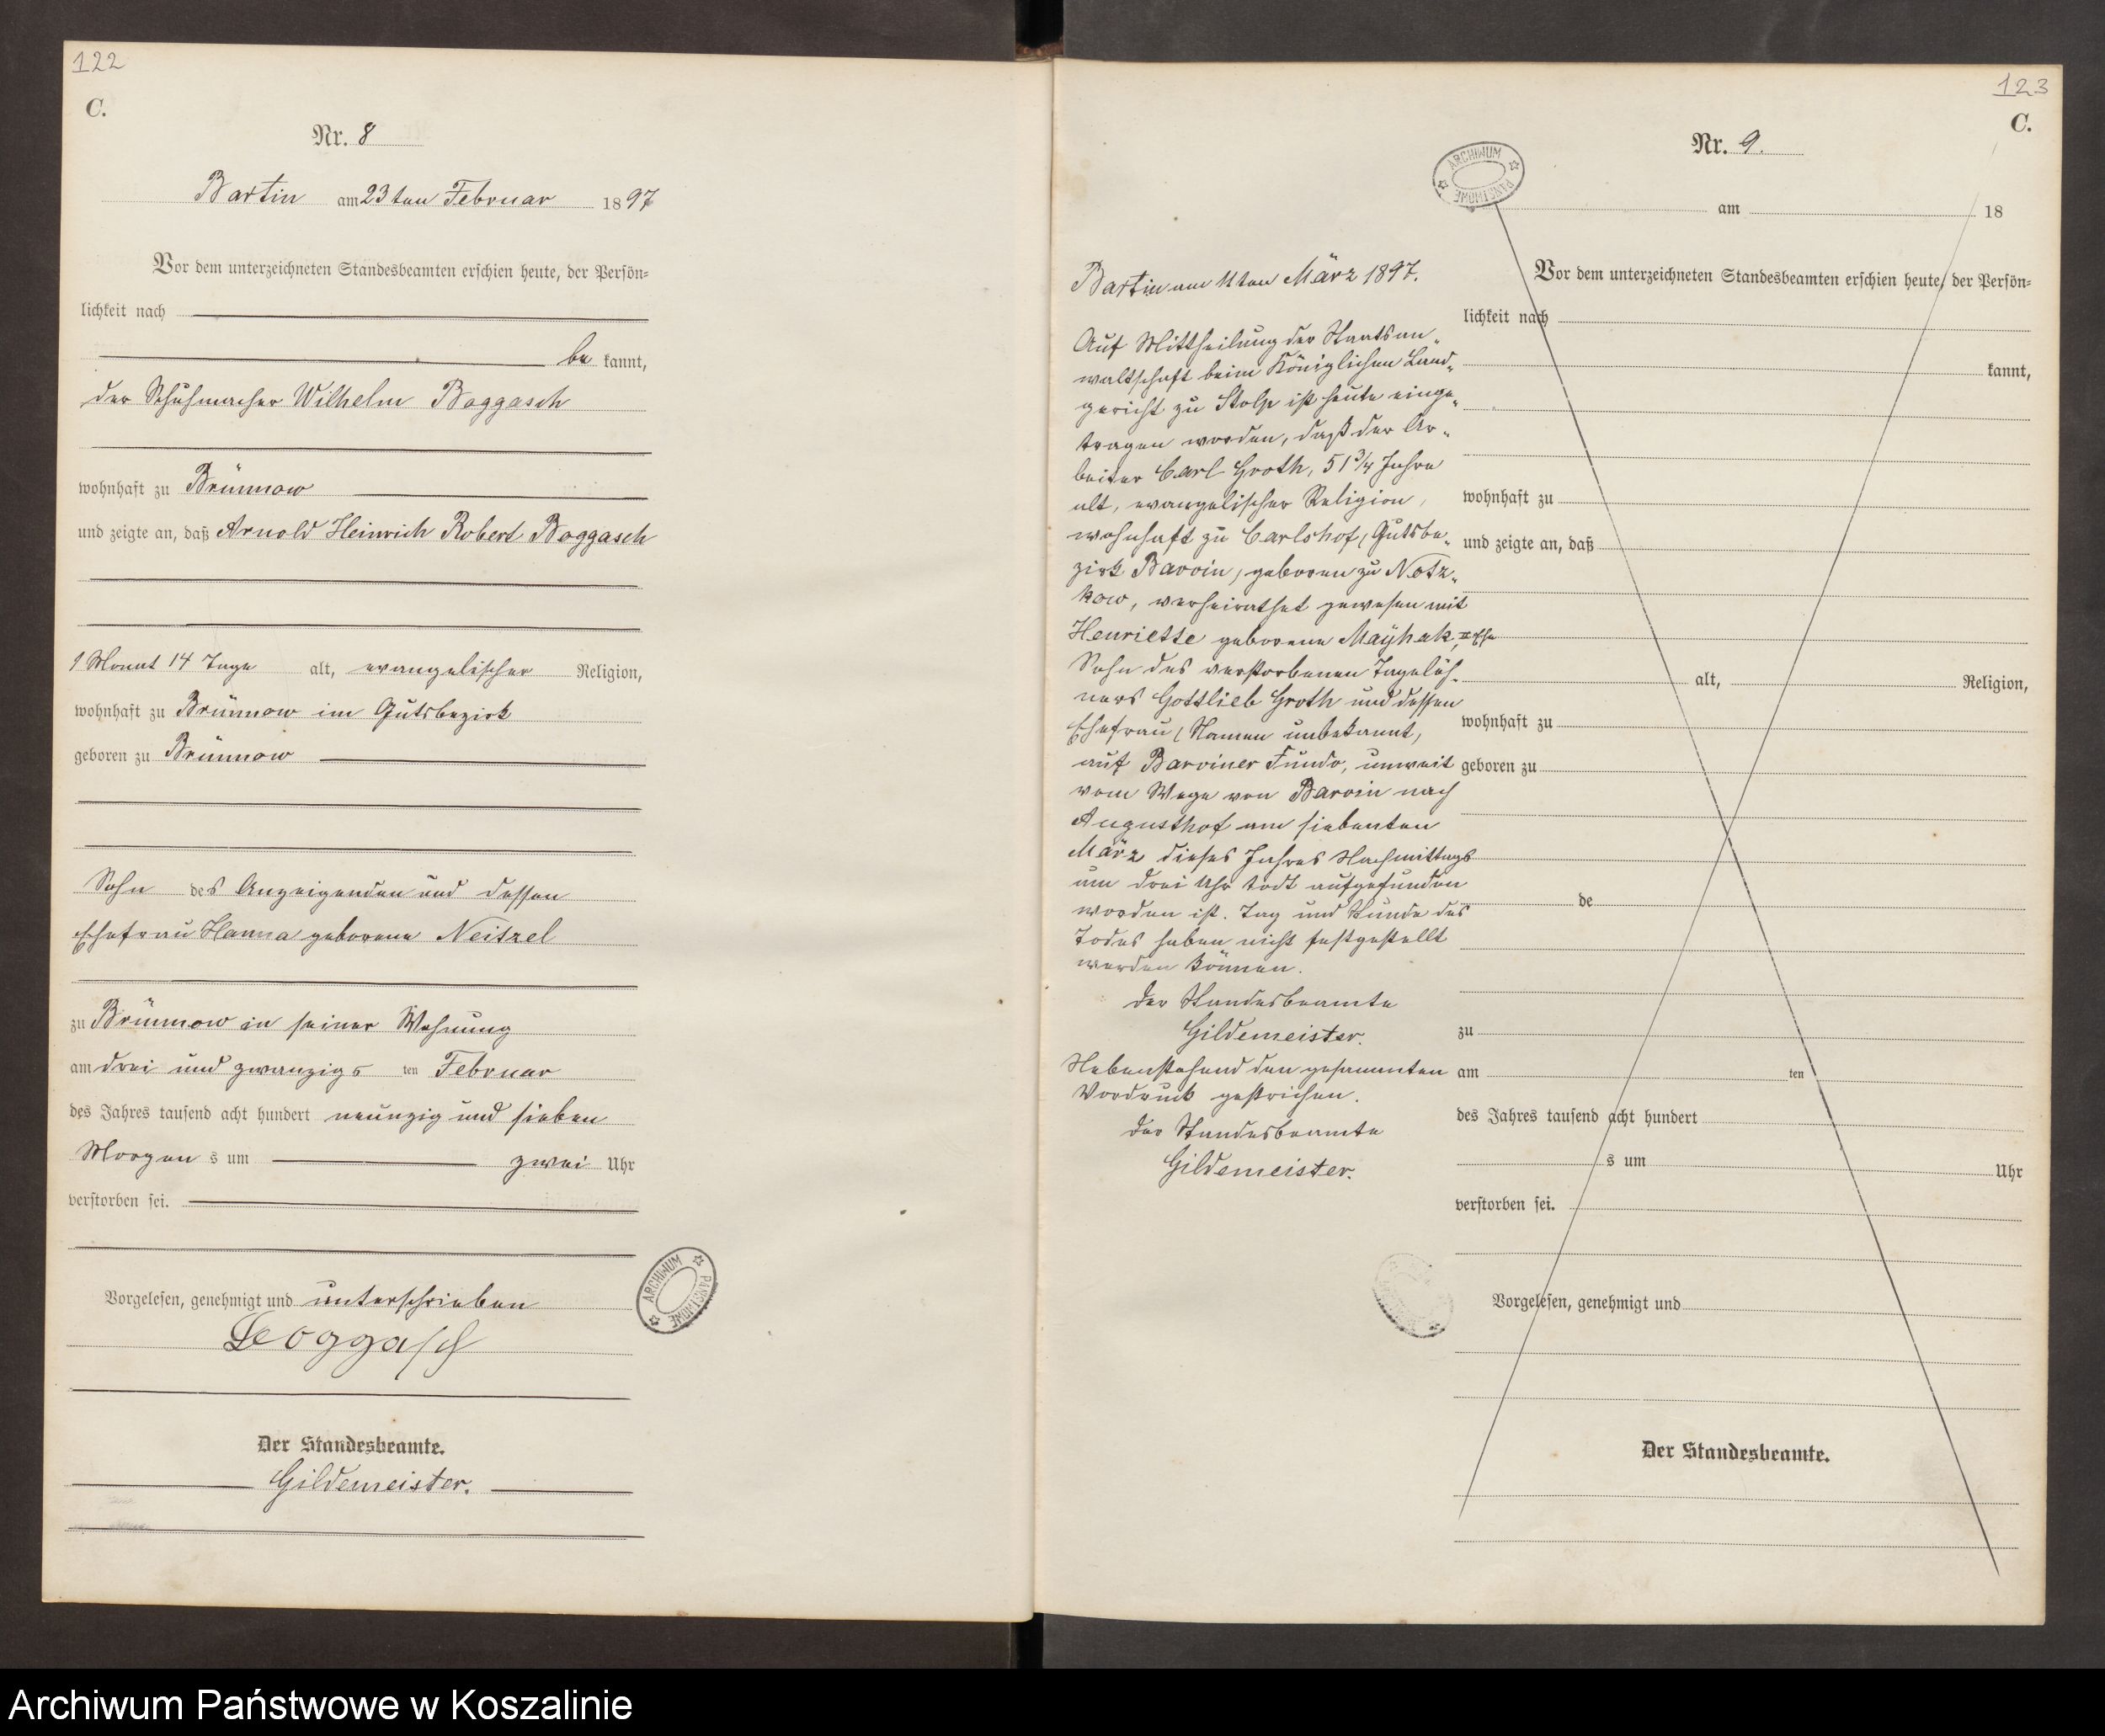 122
C.
Nr. 8
Bartin am 23ten Februar 1897
Vor dem unterzeichneten Standesbeamten erschien heute, der Persön=
lichkeit nach
be kannt,
der Schuhmacher Wilhelm Boggasch
wohnhaft zu Brünnow
und zeigte an, daß Arnold Heinrich Robert Boggasch
1 Monat 14 Tage alt, evangelischer Religion,
wohnhaft zu Brünnow im Gutsbezirk
geboren zu Brünnow
Sohn des Anzeigenden und dessen
Ehefrau Hanna geborene Neitzel
zu Brünnow in seiner Wohnung
am drei und zwanzigs ten Februar
des Jahres tausend acht hundert neunzig und sieben
Morgen s um zwei Uhr
verstorben sei.
Vorgelesen, genehmigt und unterschrieben
Boggasch
Der Standesbeamte.
Gildemeister.
ARCHIWUM PAŃSTWOWE
123
C.
Nr. 9.
ARCHIWUM PAŃSTWOWE
am 18
Bartin am 11ten März 1897.
Auf Mittheilung der Staatsan„
waltschaft beim Königlichen Land„
gericht zu Stolp ist heute einge„
tragen worden, daß der Ar„
beiter Carl Groth, 51 3/4 Jahre
alt, evangelischer Religion,
wohnhaft zu Carlshof, Gutsbe„
zirk Barvin, geboren zu Notz„
kow, verheirathet gewesen mit
Henriette geborene Mayhak, II Ehe
Sohn des verstorbenen Tagelöh„
ners Gottlieb Groth und dessen
Ehefrau, Namen unbekannt,
auf Barviner Fundo, unweit
vom Wege von Barvin nach
Augusthof am siebenten
März dieses Jahres Nachmittags
um drei Uhr todt aufgefunden
worden ist. Tag und Stunde des
Todes haben nicht festgestellt
werden können.
Der Standesbeamte
Gildemeister.
Nebenstehend den gesammten
Vordruck gestrichen.
Der Standesbeamte
Gildemeister.
Vor dem unterzeichneten Standesbeamten erschien heute, der Persön=
lichkeit nach
kannt,
wohnhaft zu
und zeigte an, daß
alt, Religion,
wohnhaft zu
geboren zu
de
zu
am ten
des Jahres tausend acht hundert
s um Uhr
verstorben sei.
Vorgelesen, genehmigt und
Der Standesbeamte.
Archiwum Państwowe w Koszalinie